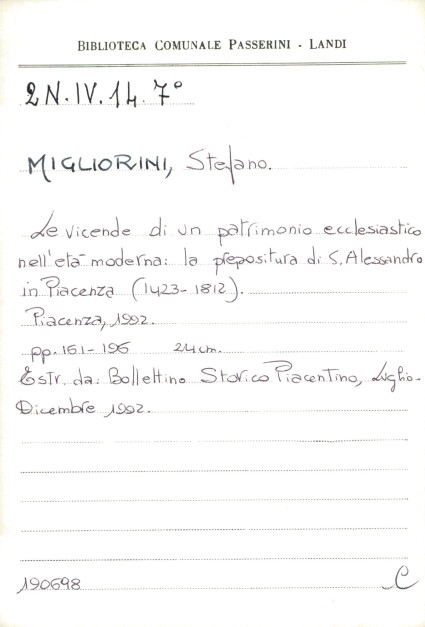 BIBLIOTECA COMUNALE PASSERINI - LANDI
2N.IV.14.7°
MIGLIORINI, Stefano.
Le vicende di un patrimonio ecclesiastico
nell'età moderna: la prepositura di S. Alessandro
in Piacenza (1423-1812).
Piacenza, 1992.
pp. 151-196 24 cm.
Estr. da: Bollettino Storico Piacentino, Luglio-
Dicembre 1992.
190698 C